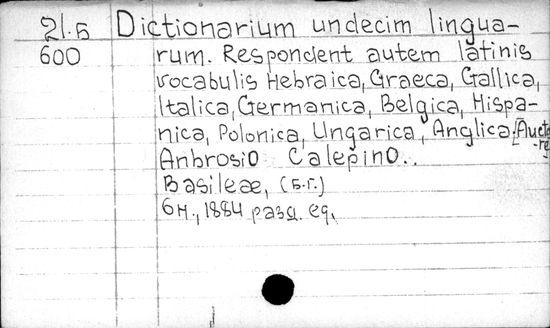 21.Б Dictionarium undecim lingua-
600 rum. Respondent autem latinis
vocabulis Hebraica, Graeca, Gallica,
Italica, Germanica, Belgica, Hispa-
nica, Polonica, Ungarica, Anglica. [Aucto-
re]
Anbrosio Calepino..
Basileae, (б.г.)
6н., 1884 разд. ец.